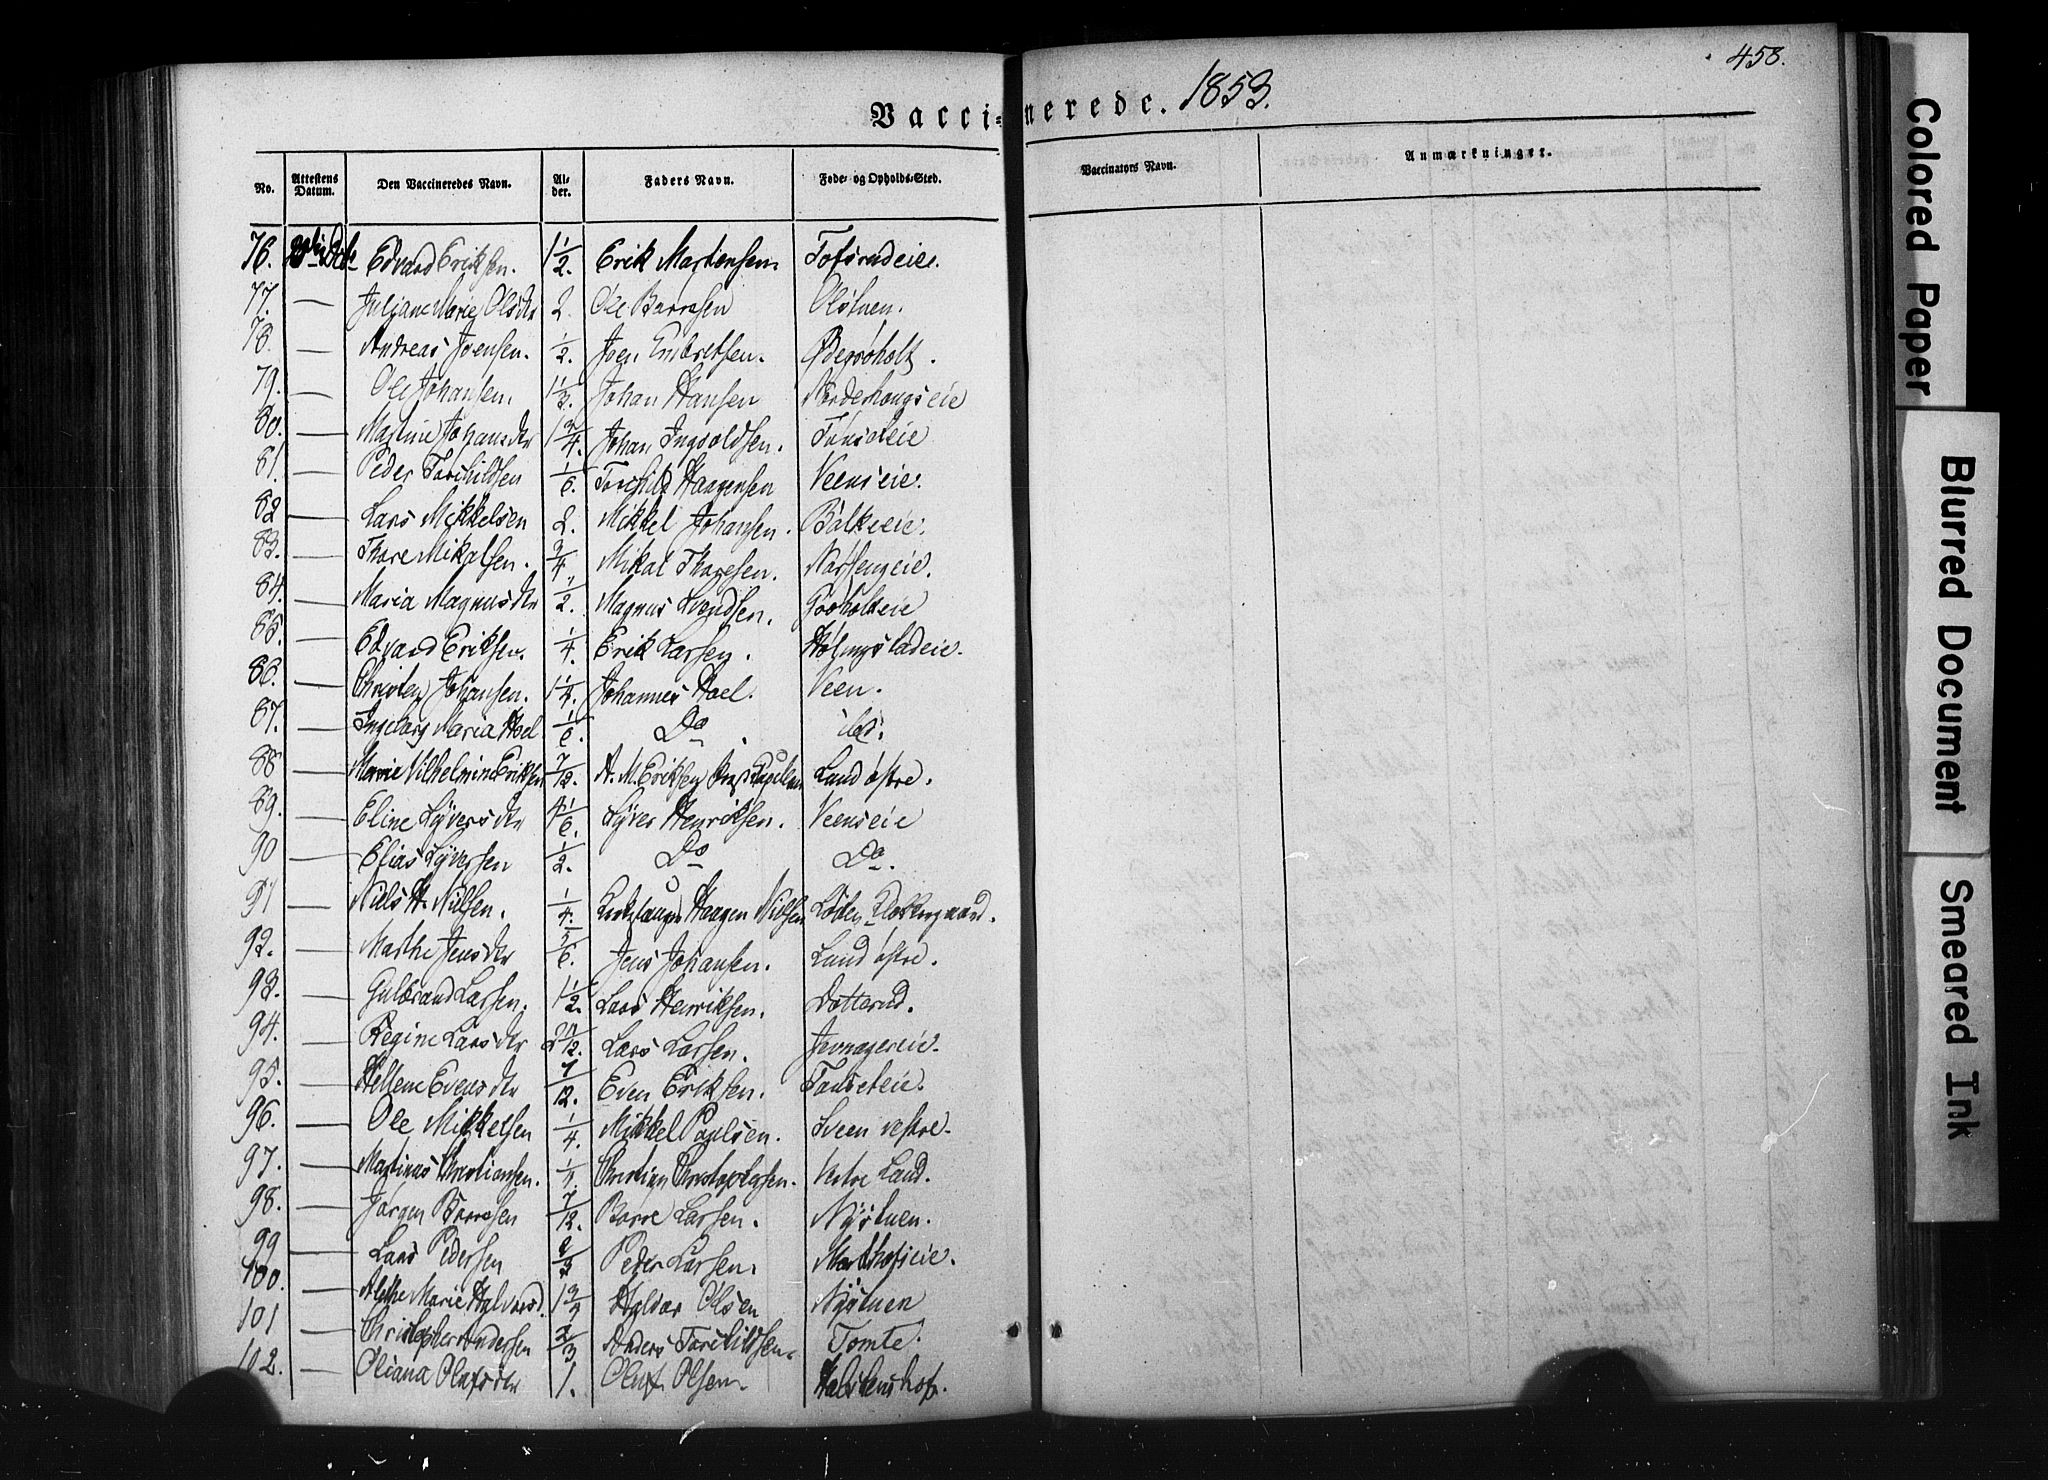 458.
Vaccinerede. 1853.
No. Attestens Datum. Den Vaccineredes Navn. Alder. Faders Navn. Føde- og Opholds-Sted. Vaccinators Navn. Anmærkninger.
76. Edvard Eriksen. 1 1/2. Erik Martensen. Tofsrudeie.
77. — Juliane Marie Olsdtr 2. Ole Borresen Olstuen.
78. — Andreas Joensen. 1/2. Joen Embretsen.
79. — Ole Johansen. 1 1/3. Johan Hansen Norderhougseie
80. — Martine Johansdtr 1 3/4. Johan Ingvoldsen. Tønseteie
81. — Peder Torchildsen 1/6. Torchild Haagensen Veenseie.
82 — Lars Mikkelsen 2. Mikkel Johansen. Balkeeie.
83. — Thore Mikalsen. 3/4 Mikal Thoresen. Narfengeie.
84. — Maria Magnusdtr 1/2. Magnus Svendsen. Gooholteie
85. — Edvard Eriksen. 1/4. Erik Larsen. Holmstadeie.
86. — Christen Johansen. 1 1/4. Johannes Hoel. Veen.
87. — Ingeborg Maria Hoel 1/6. Do ibd.
88 — Marie Vilhelmine Eriksen 7/12. A. M. Eriksen Land østre.
89. — Eline Syversdtr 4 1/6. Syver Henriksen. Veenseie
90 — Elias Syversen 1/2. Do Do.
91 — Niels H. Nilsen. 1/4. Kirkesanger Haagen Nilsen Løken Klokkergaard.
92. — Marthe Jensdtr 5/6. Jens Johansen. Land østre.
93. — Gulbrand Larsen. 1 1/2. Lars Henriksen. Dotterud.
94. — Regine Larsdtr 2 7/12. Lars Larsen. Jevnagereie.
95. — Hellene Evensdtr 7/12. Even Eriksen. Tønseteie.
96. — Ole Mikkelsen 1/4. Mikkel Paulsen. Sveen vestre.
97. — Martinus Christiansen. 1/4. Christian Christophersen. Vestre Land.
98. — Jørgen Borresen 7/12. Borre Larsen. Nystuen.
99 — Lars Pedersen 2/3 Peder Larsen. Marthofseie.
100. — Alethe Marie Halvorsd. 1 3/4 Halvor Olsen Nystuen
101 — Christopher Andersen 2/3 Anders Torchildsen. Tomte.
102. — Oliana Olufsdtr 1. Oluf Olsen. Halstenshof.
Colored Paper
Blurred Document
Smeared Ink